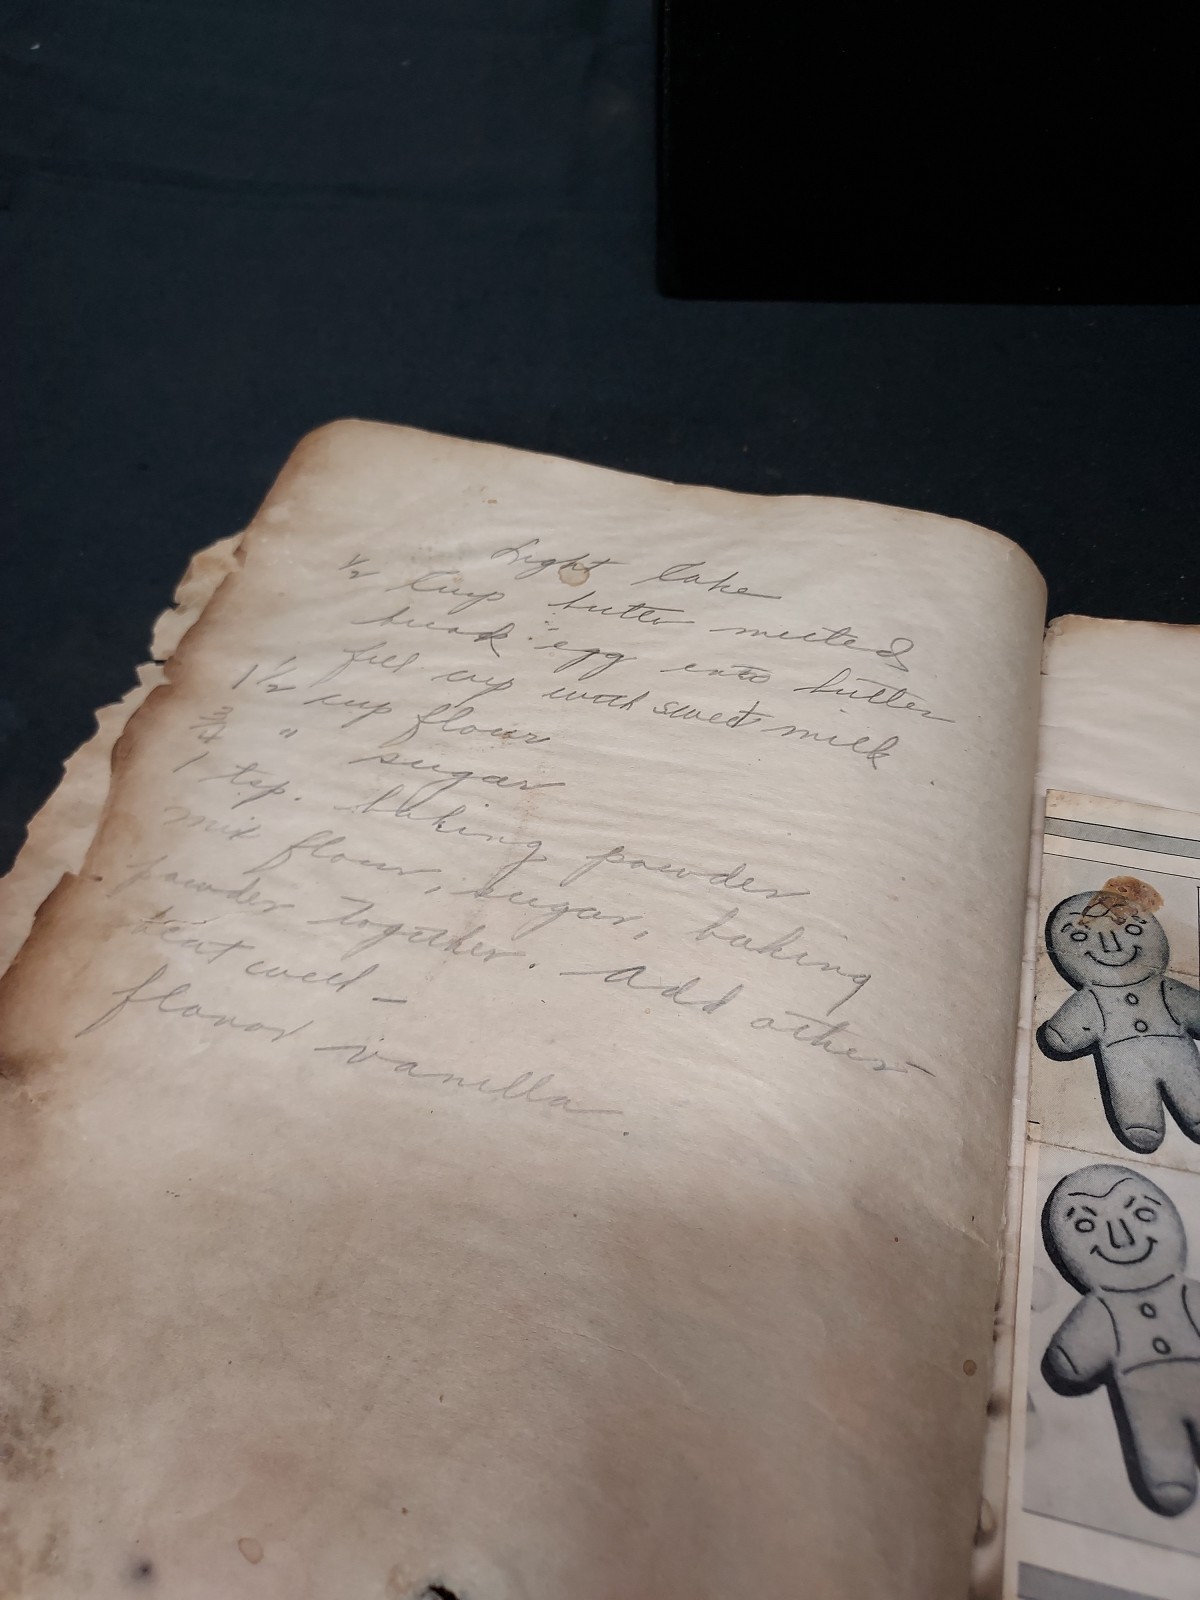 Light Cake
1/2 Cup butter melted
break egg into butter
fill cup with sweet milk.
1 1/2 cup flour
" sugar
1 tsp. baking powder
Mix flour, sugar, baking
powder together. Add other
beat well -
flavor vanilla.